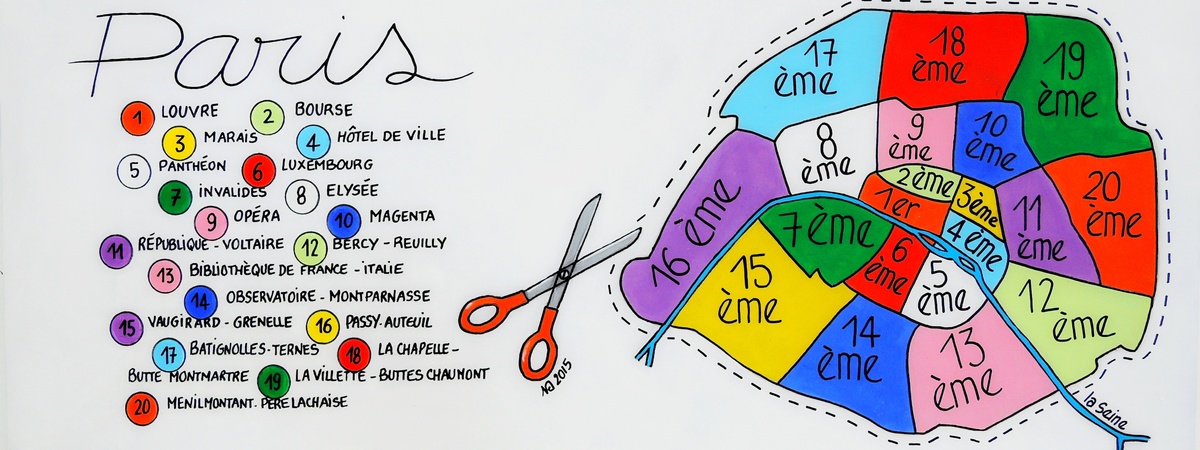 Paris
1 LOUVRE 2 BOURSE
3 MARAIS 4 HÔTEL DE VILLE
5 PANTHÉON 6 LUXEMBOURG
7 INVALIDES 8 ELYSÉE
9 OPÉRA 10 MAGENTA
11 RÉPUBLIQUE - VOLTAIRE 12 BERCY - REUILLY
13 BIBLIOTHÈQUE DE FRANCE - ITALIE
14 OBSERVATOIRE - MONTPARNASSE
15 VAUGIRARD - GRENELLE 16 PASSY-AUTEUIL
17 BATIGNOLLES-TERNES 18 LA CHAPELLE -
BUTTE MONTMARTRE 19 LA VILLETTE - BUTTES CHAUMONT
20 MENILMONTANT. PÈRE LACHAISE
2015
17
ème
18
ème
19
ème
8
ème
9
ème
10
ème
2ème
3ème
1er
4ème
11
ème
20
ème
16 ème
7ème
6
ème
5
ème
15
ème
14
ème
13
ème
12
ème
la Seine